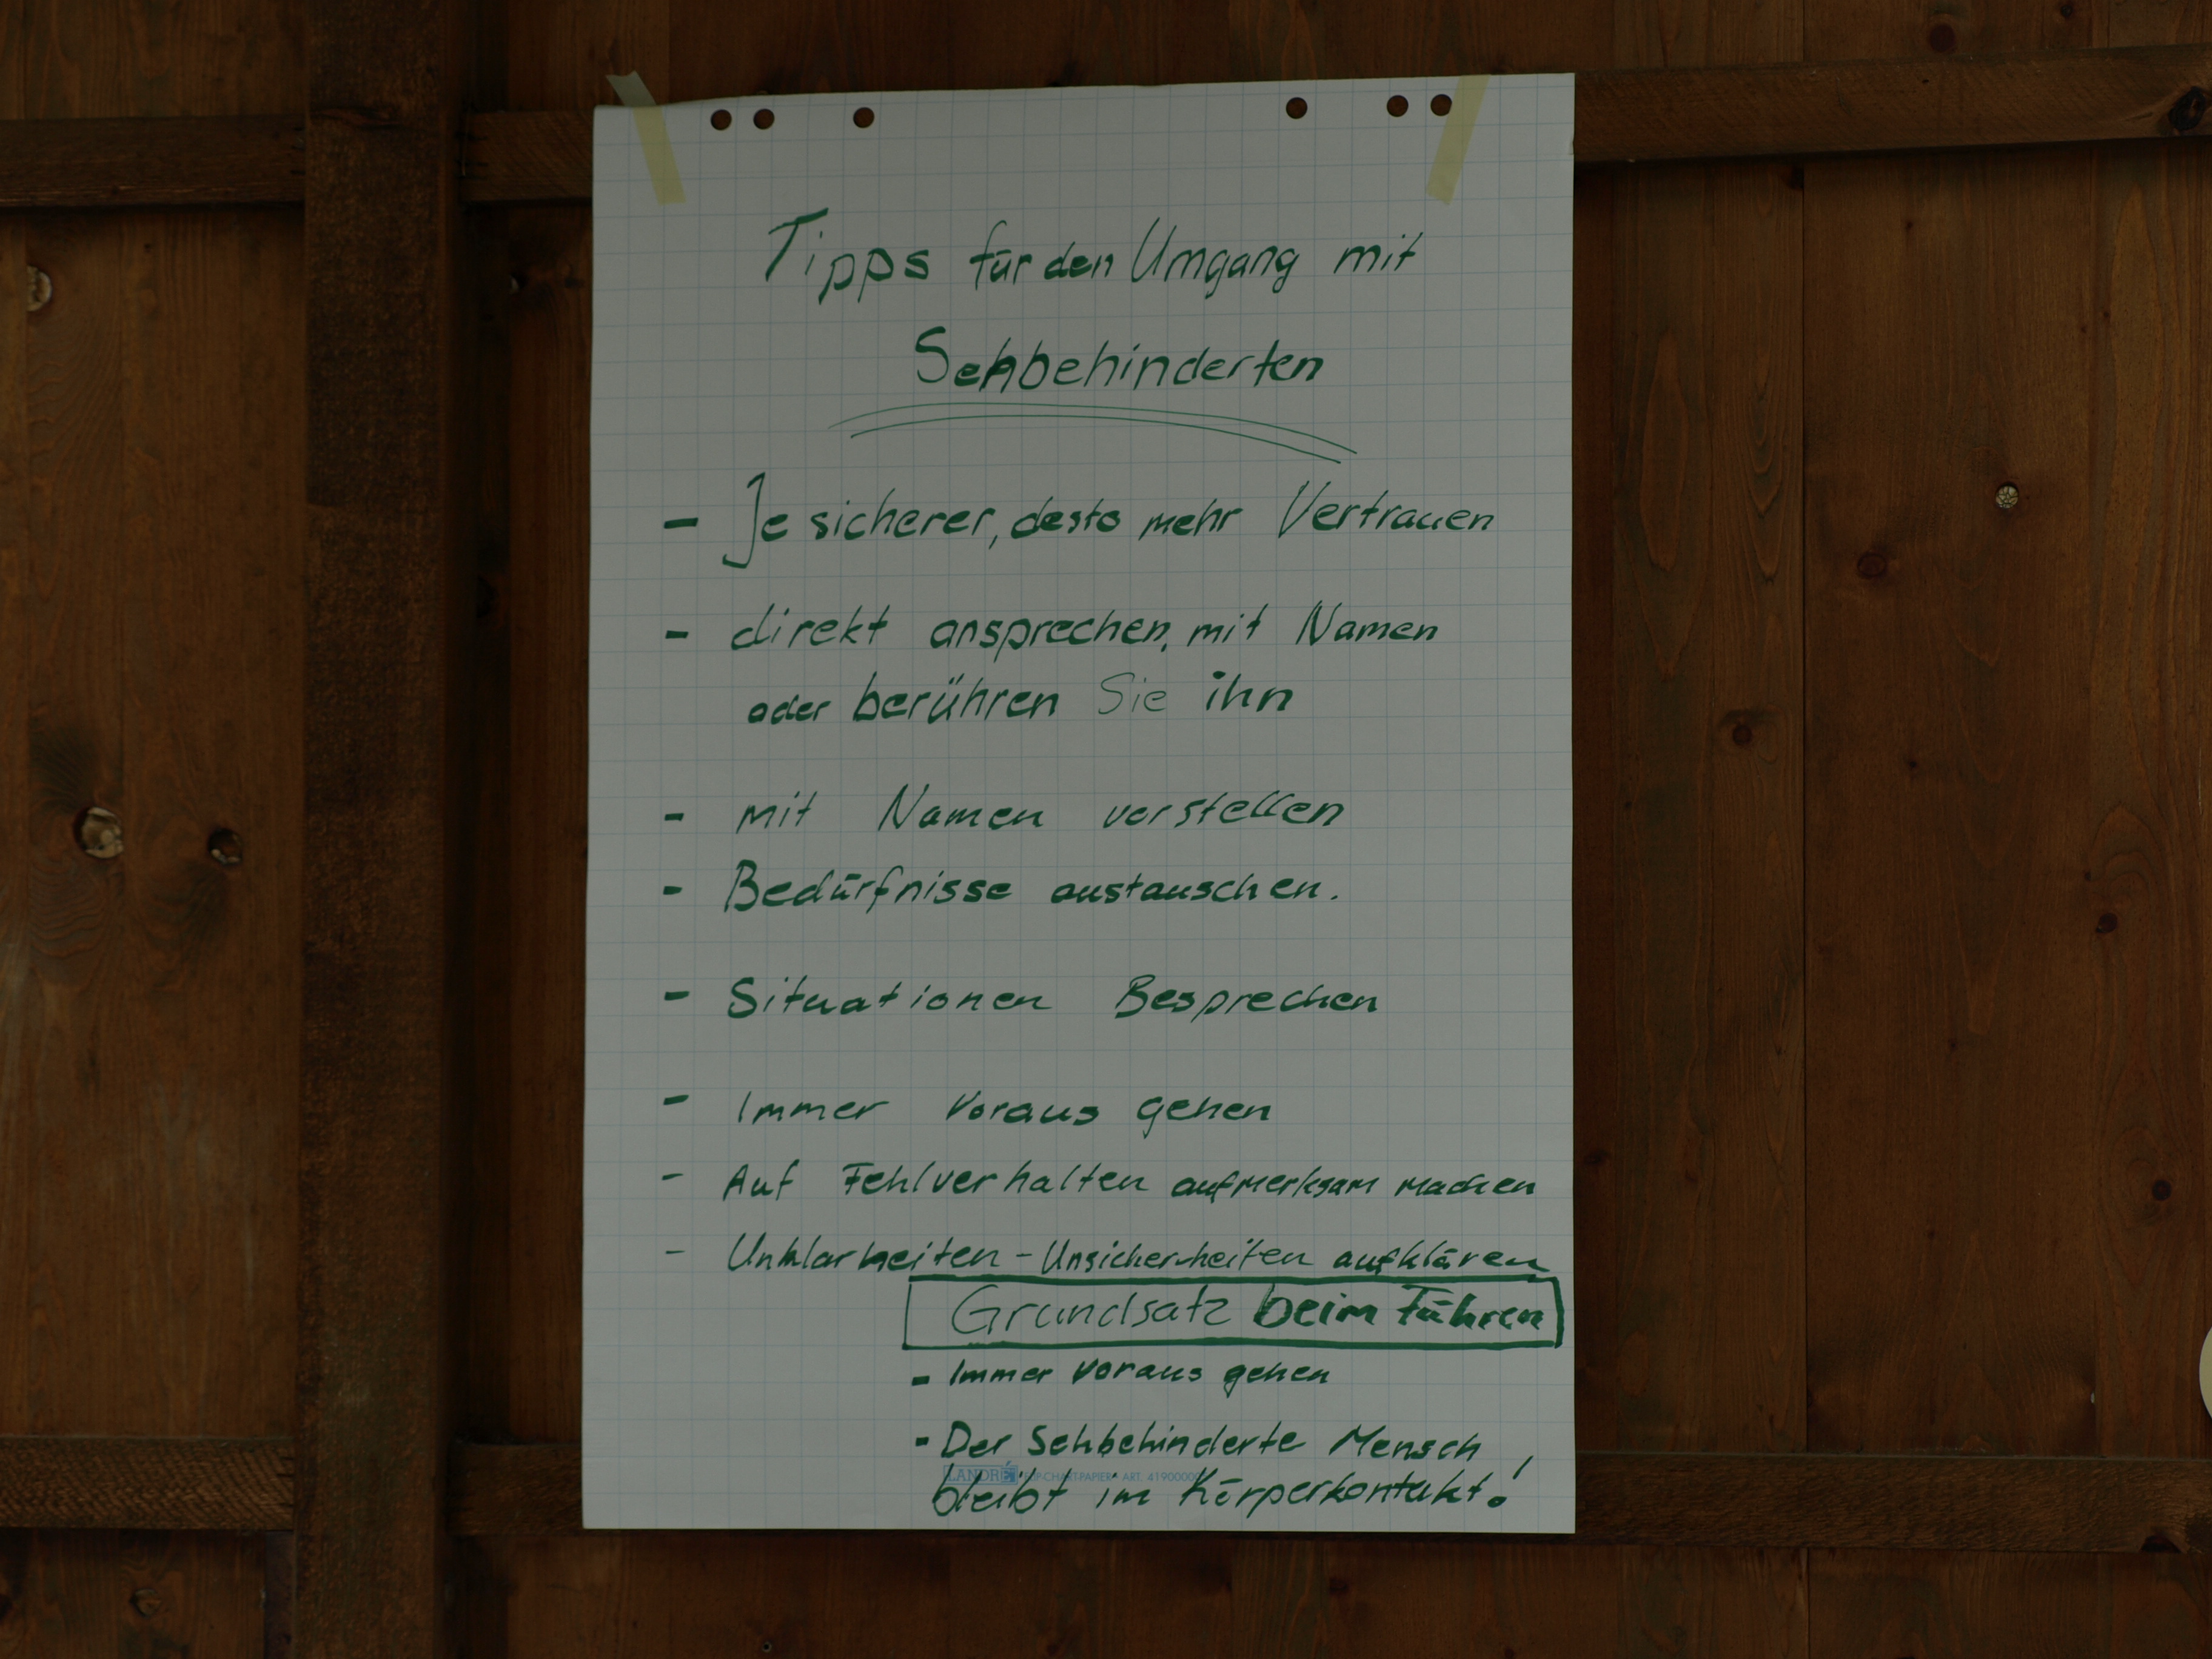 Tipps für den Umgang mit
Sehbehinderten
- Je sicherer, desto mehr Vertrauen
- direkt ansprechen, mit Namen
oder berühren Sie ihn
- mit Namen vorstellen
- Bedürfnisse austauschen.
- Situationen Besprechen
- Immer voraus gehen
- Auf Fehlverhalten aufmerksam machen
- Unklarheiten - Unsicherheiten aufklären
Grundsatz beim Führen
- Immer voraus gehen
- Der Sehbehinderte Mensch
LANDRÉ ART. 41900000
bleibt im Körperkontakt!